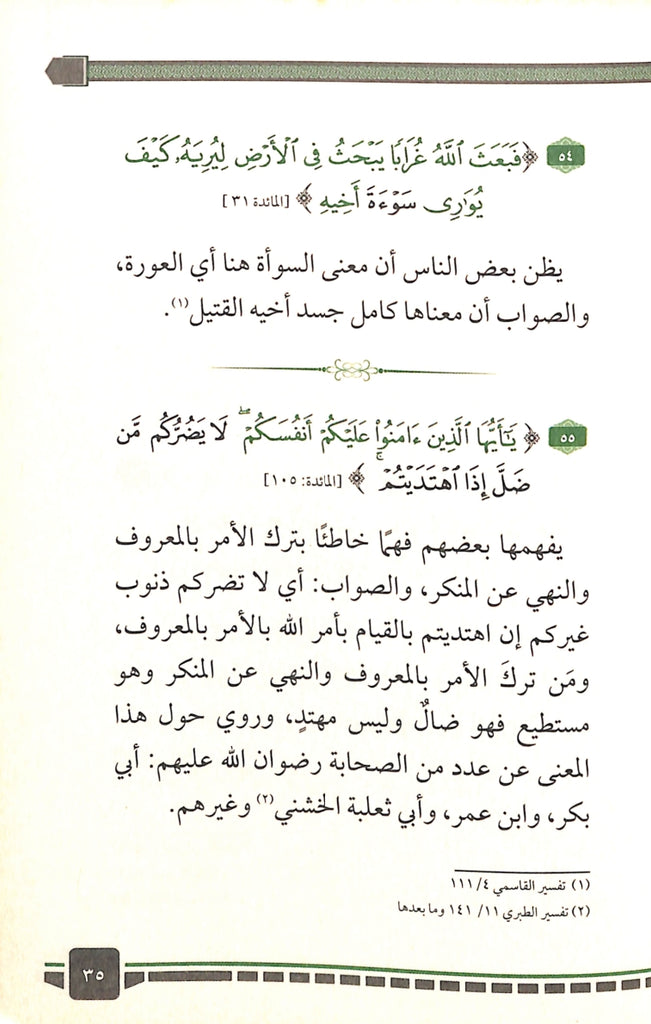 ٥٤ ﴿فَبَعَثَ ٱللَّهُ غُرَابًا يَبْحَثُ فِي ٱلْأَرْضِ لِيُرِيَهُۥ كَيْفَ
يُوَٰرِي سَوْءَةَ أَخِيهِ﴾ [المائدة ٣١]
يظن بعض الناس أن معنى السوأة هنا أي العورة،
والصواب أن معناها كامل جسد أخيه القتيل(١).
٥٥ ﴿يَٰٓأَيُّهَا ٱلَّذِينَ ءَامَنُوا۟ عَلَيْكُمْ أَنفُسَكُمْ ۖ لَا يَضُرُّكُم مَّن
ضَلَّ إِذَا ٱهْتَدَيْتُمْ ۚ﴾ [المائدة: ١٠٥]
يفهمها بعضهم فهمًا خاطئًا بترك الأمر بالمعروف
والنهي عن المنكر، والصواب: أي لا تضركم ذنوب
غيركم إن اهتديتم بالقيام بأمر الله بالأمر بالمعروف،
ومَن تركَ الأمر بالمعروف والنهي عن المنكر وهو
مستطيع فهو ضالٌ وليس مهتدٍ، وروي حول هذا
المعنى عن عدد من الصحابة رضوان الله عليهم: أبي
بكر، وابن عمر، وأبي ثعلبة الخشني(٢) وغيرهم.
(١) تفسير القاسمي ٤/ ١١١
(٢) تفسير الطبري ١١/ ١٤١ وما بعدها
٣٥